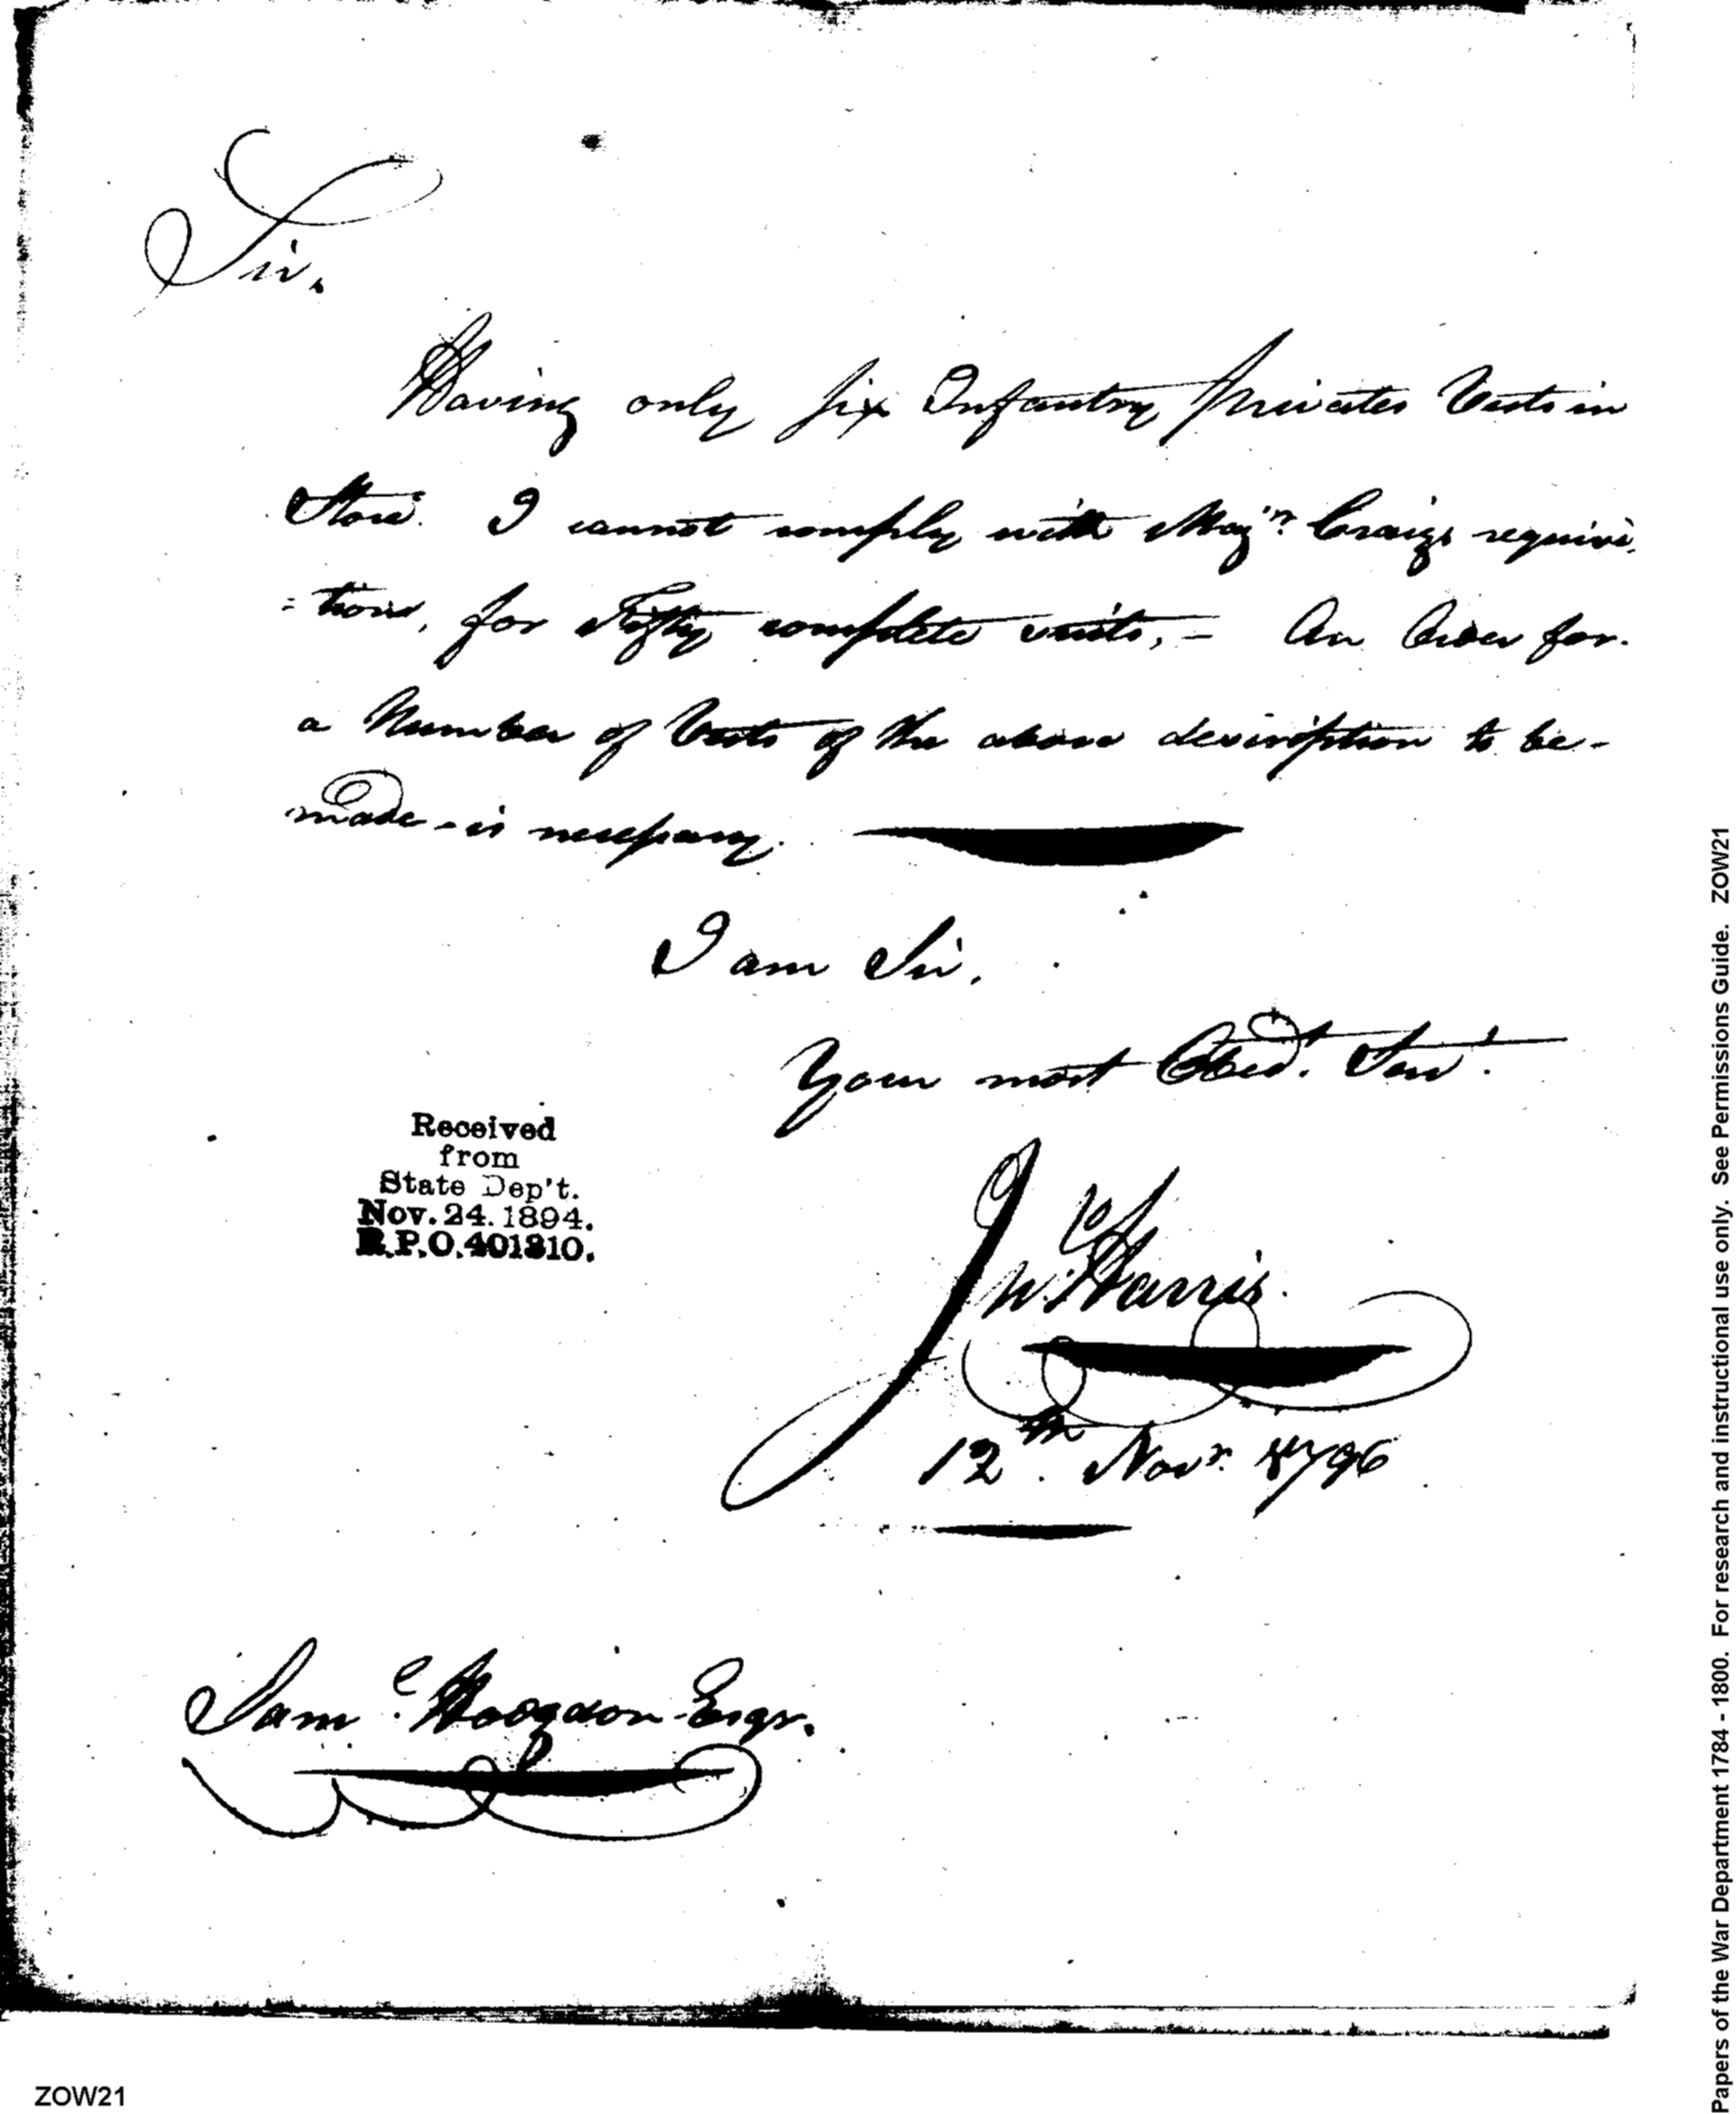 Sir.
Having only six Infantry privates Vests in
Store. I cannot comply with Majr. Craigs requisi
=tion, for Fifty complete suits, = An Order for.
a Number of Vests of the above description to be-
made - is necessary.
I am Sir.
Your most Obedt. Servt.
Jn. Harris.
12th. Novr. 1796
Received
from
State Dep't.
Nov. 24. 1894.
R.P.O. 401310.
Saml. Hodgdon Esqr.
ZOW21
Papers of the War Department 1784 - 1800. For research and instructional use only. See Permissions Guide. ZOW21